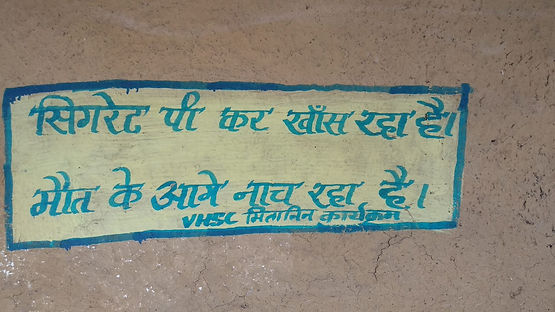 सिगरेट पी कर खाँस रहा है।
मौत के आगे नाच रहा है।
VHSC मितानिन कार्यक्रम